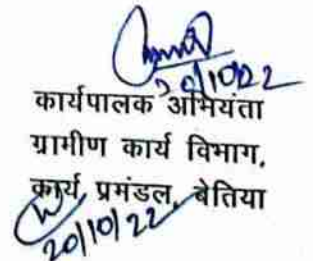 20/10/22
कार्यपालक अभियंता
ग्रामीण कार्य विभाग,
कार्य, प्रमंडल, बेतिया
20/10/22